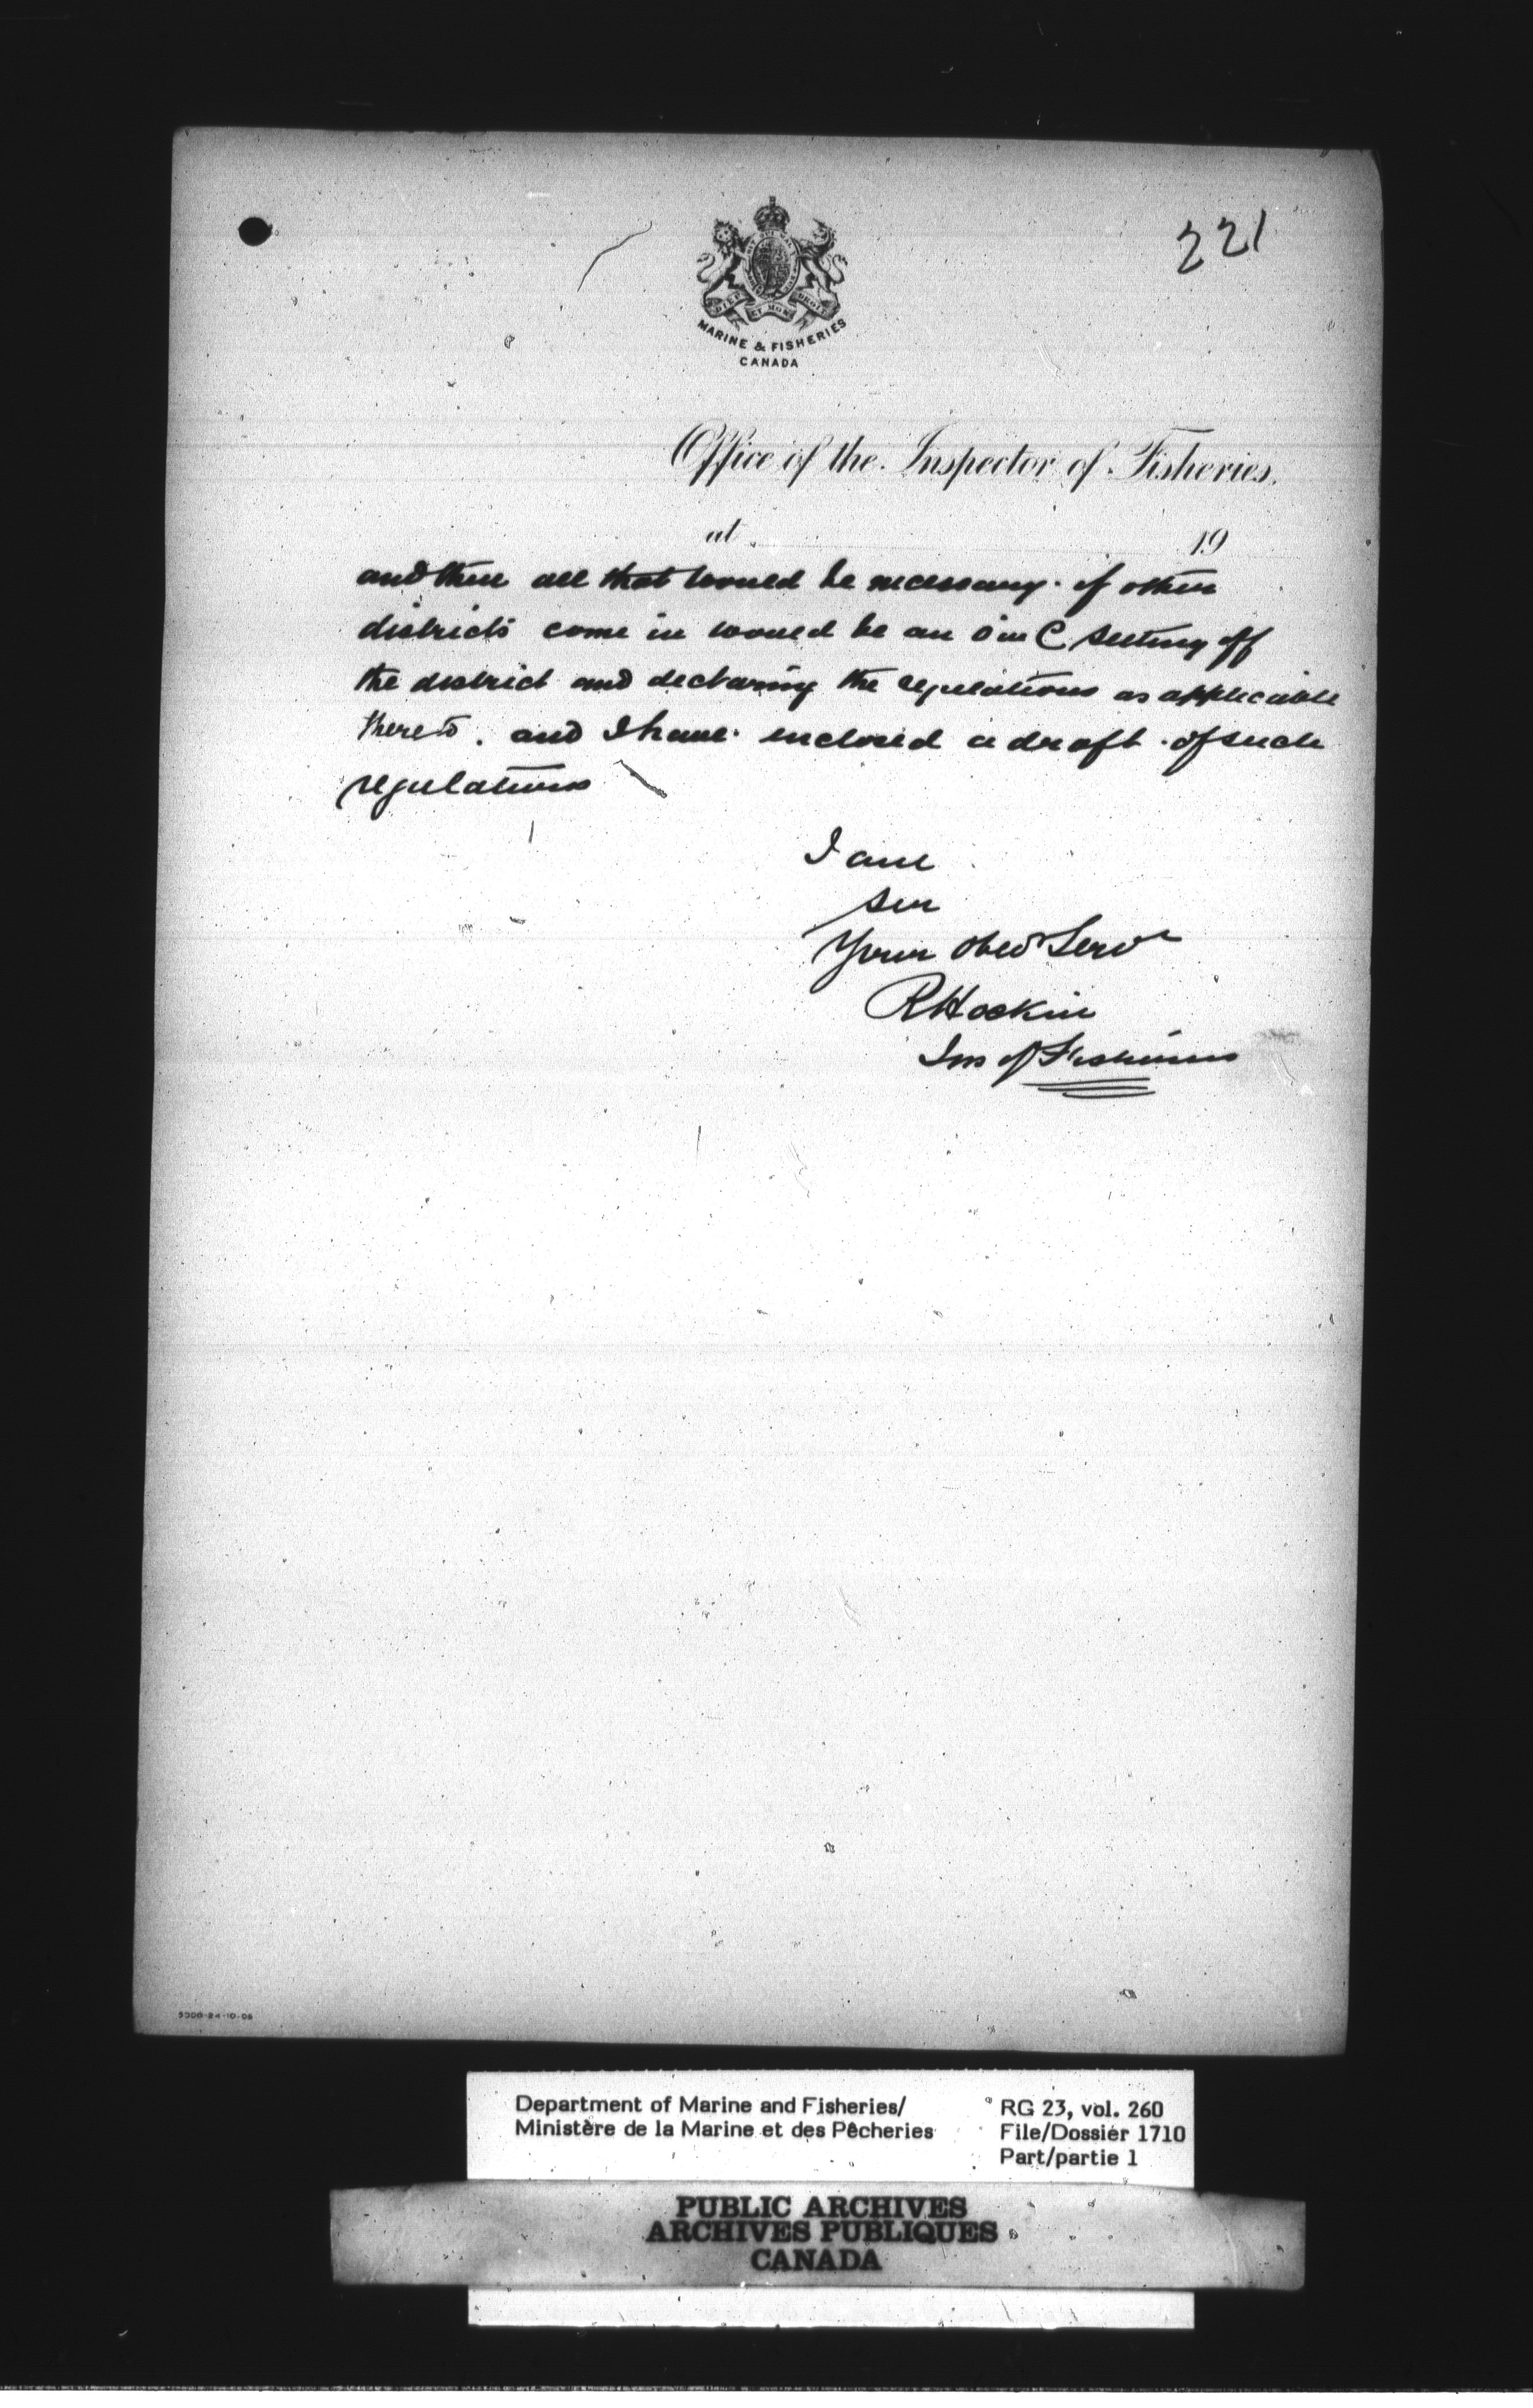 221
DIEU ET MON DROIT
MARINE & FISHERIES
CANADA
Office of the Inspector of Fisheries.
at 19
and then all that would be necessary if other
districts come in would be an O in C setting off
the district and declaring the regulations as applicable
thereto. and I have enclosed a draft of such
regulations
I am
Sir
Your obed Servt
R Hockin
Ins of Fisheries
5000-24-10-05
Department of Marine and Fisheries/
Ministère de la Marine et des Pêcheries
RG 23, vol. 260
File/Dossier 1710
Part/partie 1
PUBLIC ARCHIVES
ARCHIVES PUBLIQUES
CANADA